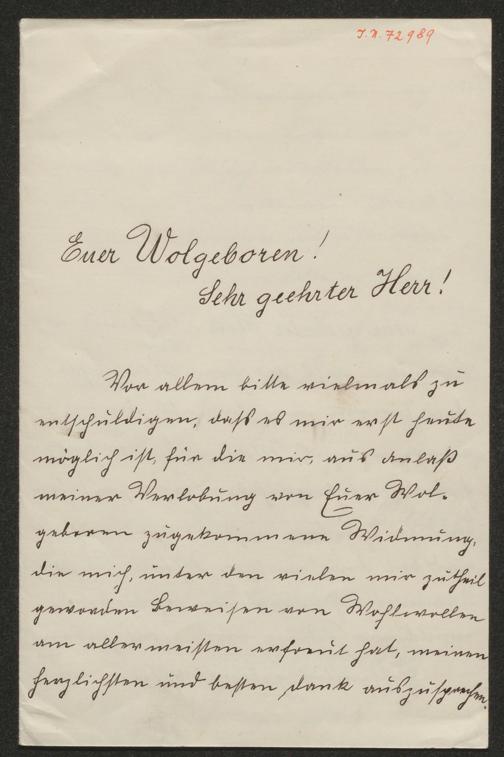 J.N. 72989
Euer Wolgeboren!
Sehr geehrter Herr!
Vor allem bitte vielmals zu
entschuldigen, dass es mir erst heute
möglich ist, für die mir, aus Anlaß
meiner Verlobung von Euer Wol-
geboren zugekommene Widmung,
die mich, unter den vielen mir zutheil
geworden Beweisen von Wohlwollen
am allermeisten erfreut hat, meinen
herzlichsten und besten Dank auszusprechen.